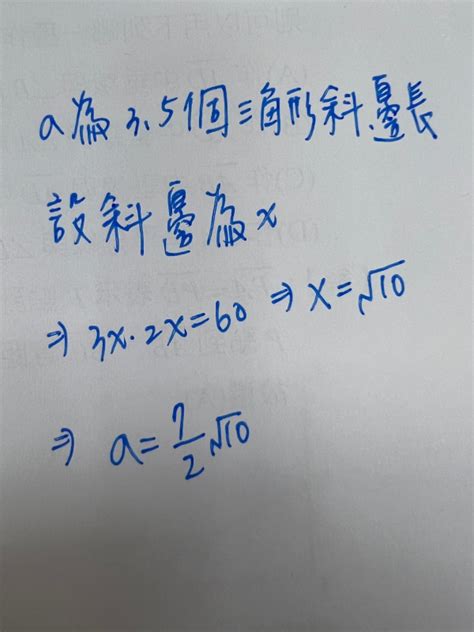 a為3.5個三角形斜邊長
設斜邊為x
⇒ 3x·2x=60 ⇒ x=√10
⇒ a=7/2√10